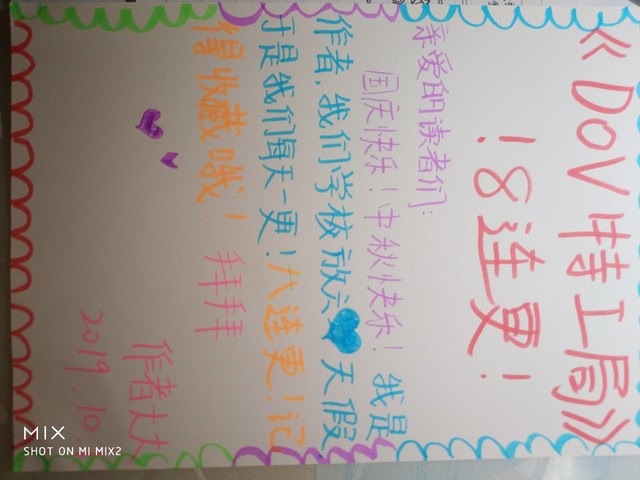 《DOV特工局》
！8连更！
亲爱的读者们：
国庆快乐！中秋快乐！我是
作者，我们学校放六天假
于是我们每天一更！八连更！记
得收藏哦！
拜拜
作者大大
2019.10.
MIX
SHOT ON MI MIX2